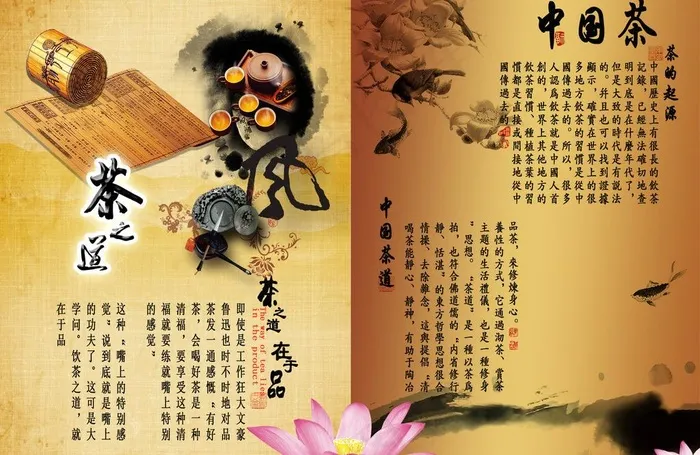 茶之道
風
茶之道
在于品
The way of tea lies
in the product
即使是工作狂大文豪
鲁迅也时不时地对品
茶发一通感慨“有好
茶，会喝好茶是一种
清福，要享受这种清
福就要练就嘴上特别
的感觉”
这种“嘴上的特别感
觉”说到底就是嘴上
的功夫了。这可是大
学问。饮茶之道，就
在于品
中国茶
茶的起源
中國歷史上有很長的飲茶
記録，已經無法確切地查
明到底是在什麼年代了，
但是大致的時代是有説法
的。并且也可以找到證據
顯示，確實在世界上的很
多地方飲茶的習慣是從中
國傳過去的。所以，很多
人認爲飲茶就是中國人首
創的，世界上其他地方的
飲茶習慣、種植茶葉的習
慣都是直接或間接地從中
國傳過去的
中国茶道
喝茶能静心、静神，有助于陶冶
情操、去除雜念，這與提倡“清
静、恬湛”的東方哲學思想很合
拍，也符合佛道儒的“内省修行
”思想。“茶道”是一種以茶爲
主題的生活禮儀，也是一種修身
養性的方式，它通過沏茶、賞茶
品茶，來修煉身心。